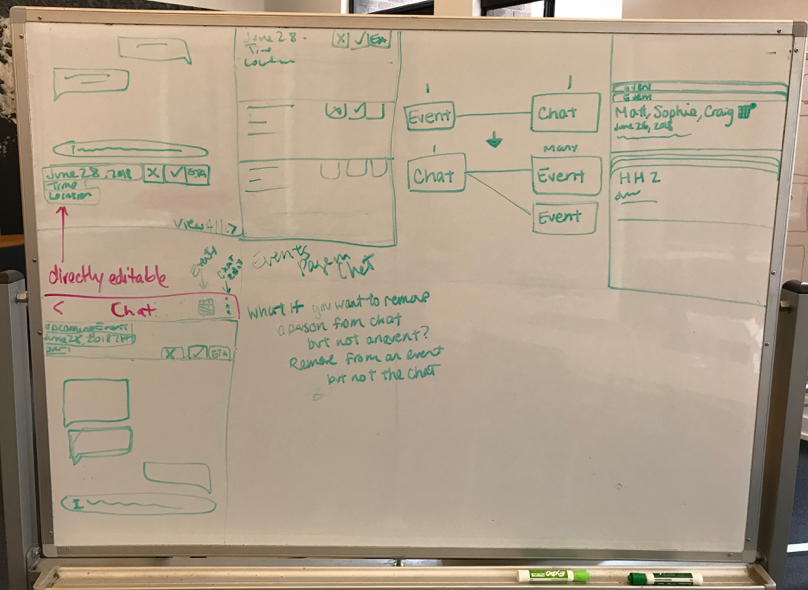 June 28, 2018 X ✓ ETA
Time
Location
View All >
directly editable
< Chat
Events
Chat
edit
Upcoming Events
June 28, 2018
X ✓ ETA
I
June 28
Time
Location
X ✓ ETA
X ✓
Events
Page in
Chat
What if you want to remove
a person from chat
but not an event?
Remove from an event
but not the chat
1 1
Event Chat
1 many
Chat Event
Event
Event
Event
Matt, Sophie, Craig
June 28, 2018
HHZ
EXPO